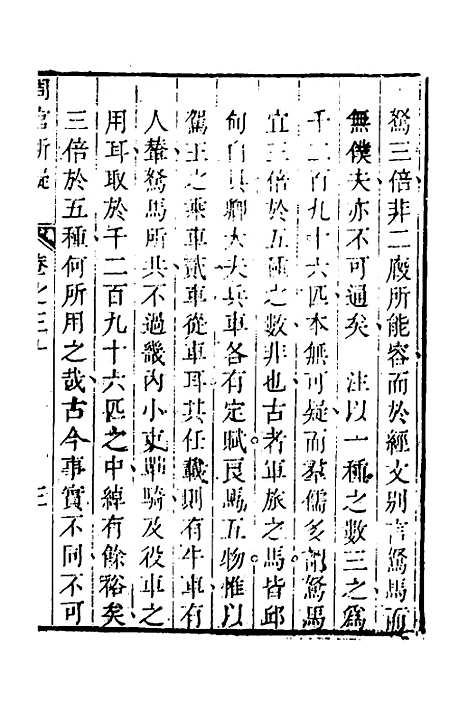 駑三倍非二廐所能容而於經文别言駑馬而
無僕夫亦不可通矣　注以一種之數三之爲
千二百九十六匹本無可疑而羣儒多謂駑馬
宜三倍於五種之數非也古者軍旅之馬皆邱
甸自具卿大夫兵車各有定賦良馬五物惟以
駕王之乘車貳車從車耳其任載則有牛車有
人輦駑馬所共不過畿內小吏單騎及役車之
用耳取於千二百九十六匹之中綽有餘裕矣
三倍於五種何所用之哉古今事實不同不可
周官析疑　卷之三十　三